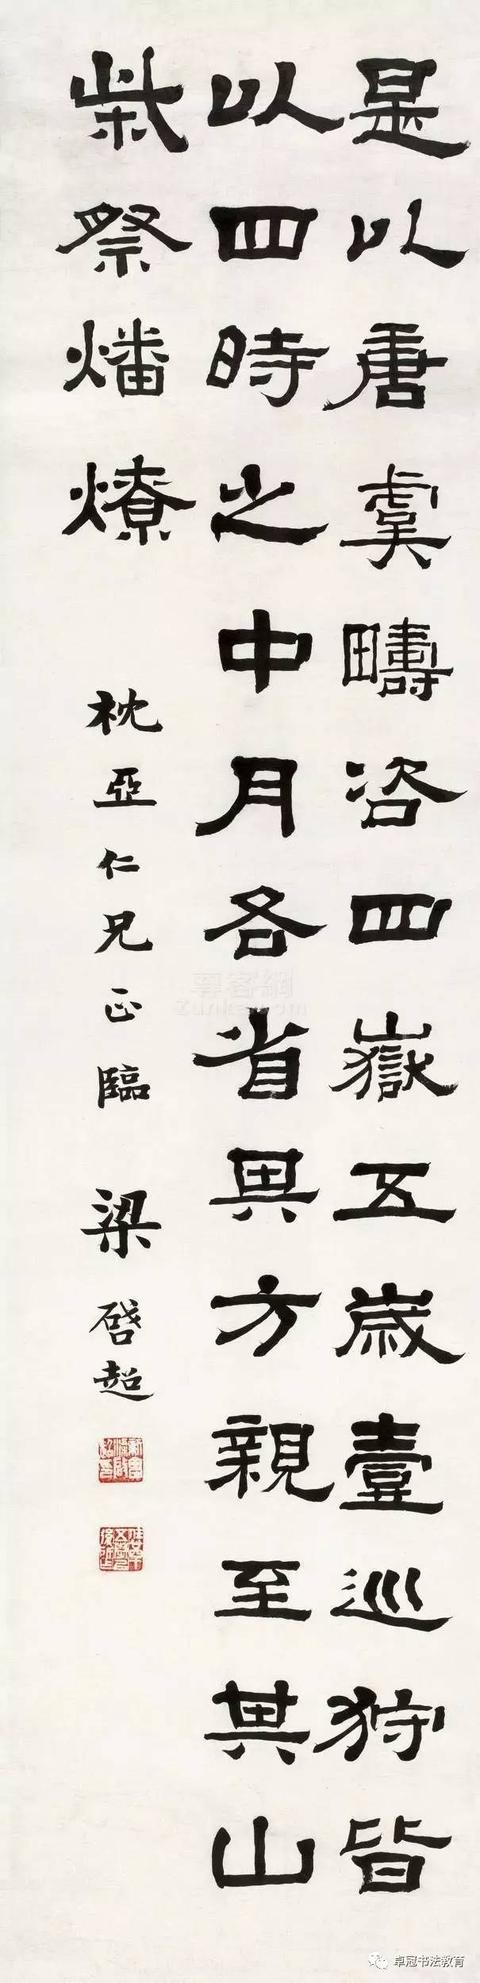 是以唐虞疇咨四嶽五歲壹巡狩皆
以四時之中月各省其方親至其山
柴祭燔燎
枕亞仁兄正臨 梁啓超
尊客網
卓冠书法教育